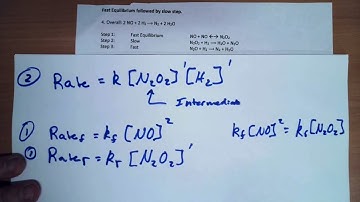 Fast Equilibrium followed by slow step.
4. Overall: 2 NO + 2 H₂ → N₂ + 2 H₂O
Step 1: Fast Equilibrium NO + NO ↔ N₂O₂
Step 2: Slow N₂O₂ + H₂ → H₂O + N₂O
Step 3: Fast N₂O + H₂ → N₂ + H₂O
② Rate = k [N₂O₂]¹ [H₂]¹
Intermediate
① Rate_f = k_f [NO]² k_f [NO]² = k_r [N₂O₂]
Rate_r = k_r [N₂O₂]¹